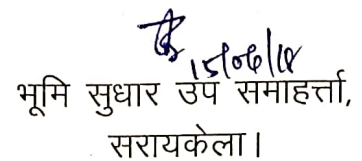 15/06/18
भूमि सुधार उप समाहर्त्ता,
सरायकेला।